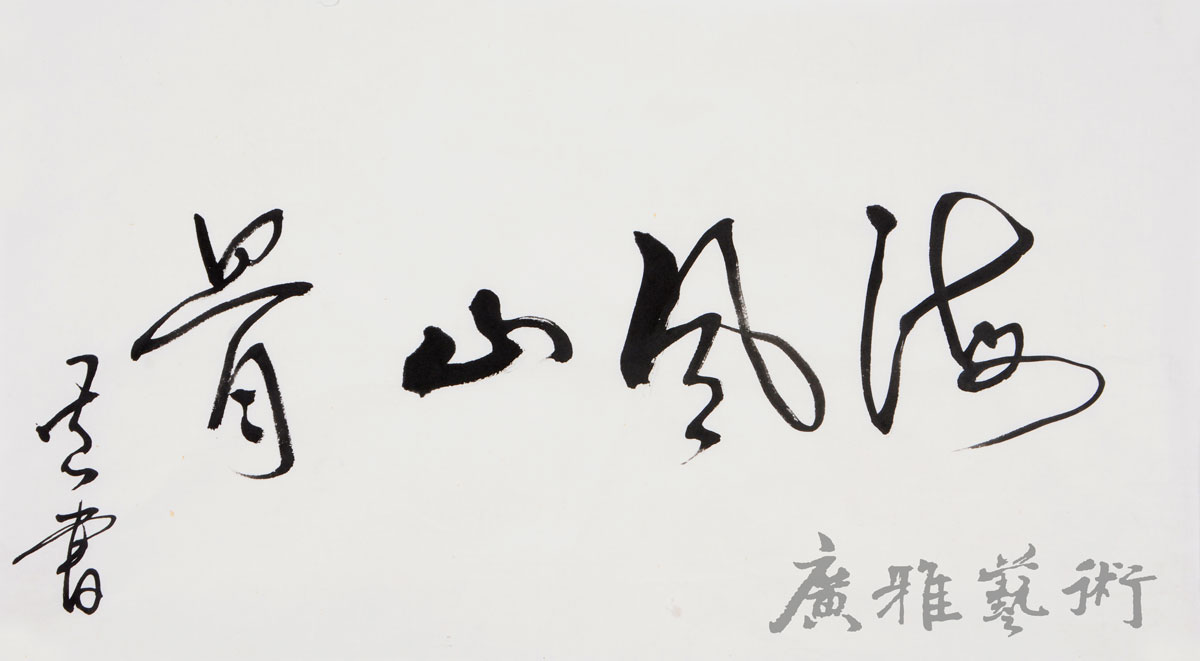 海風山骨
書
廣雅藝術